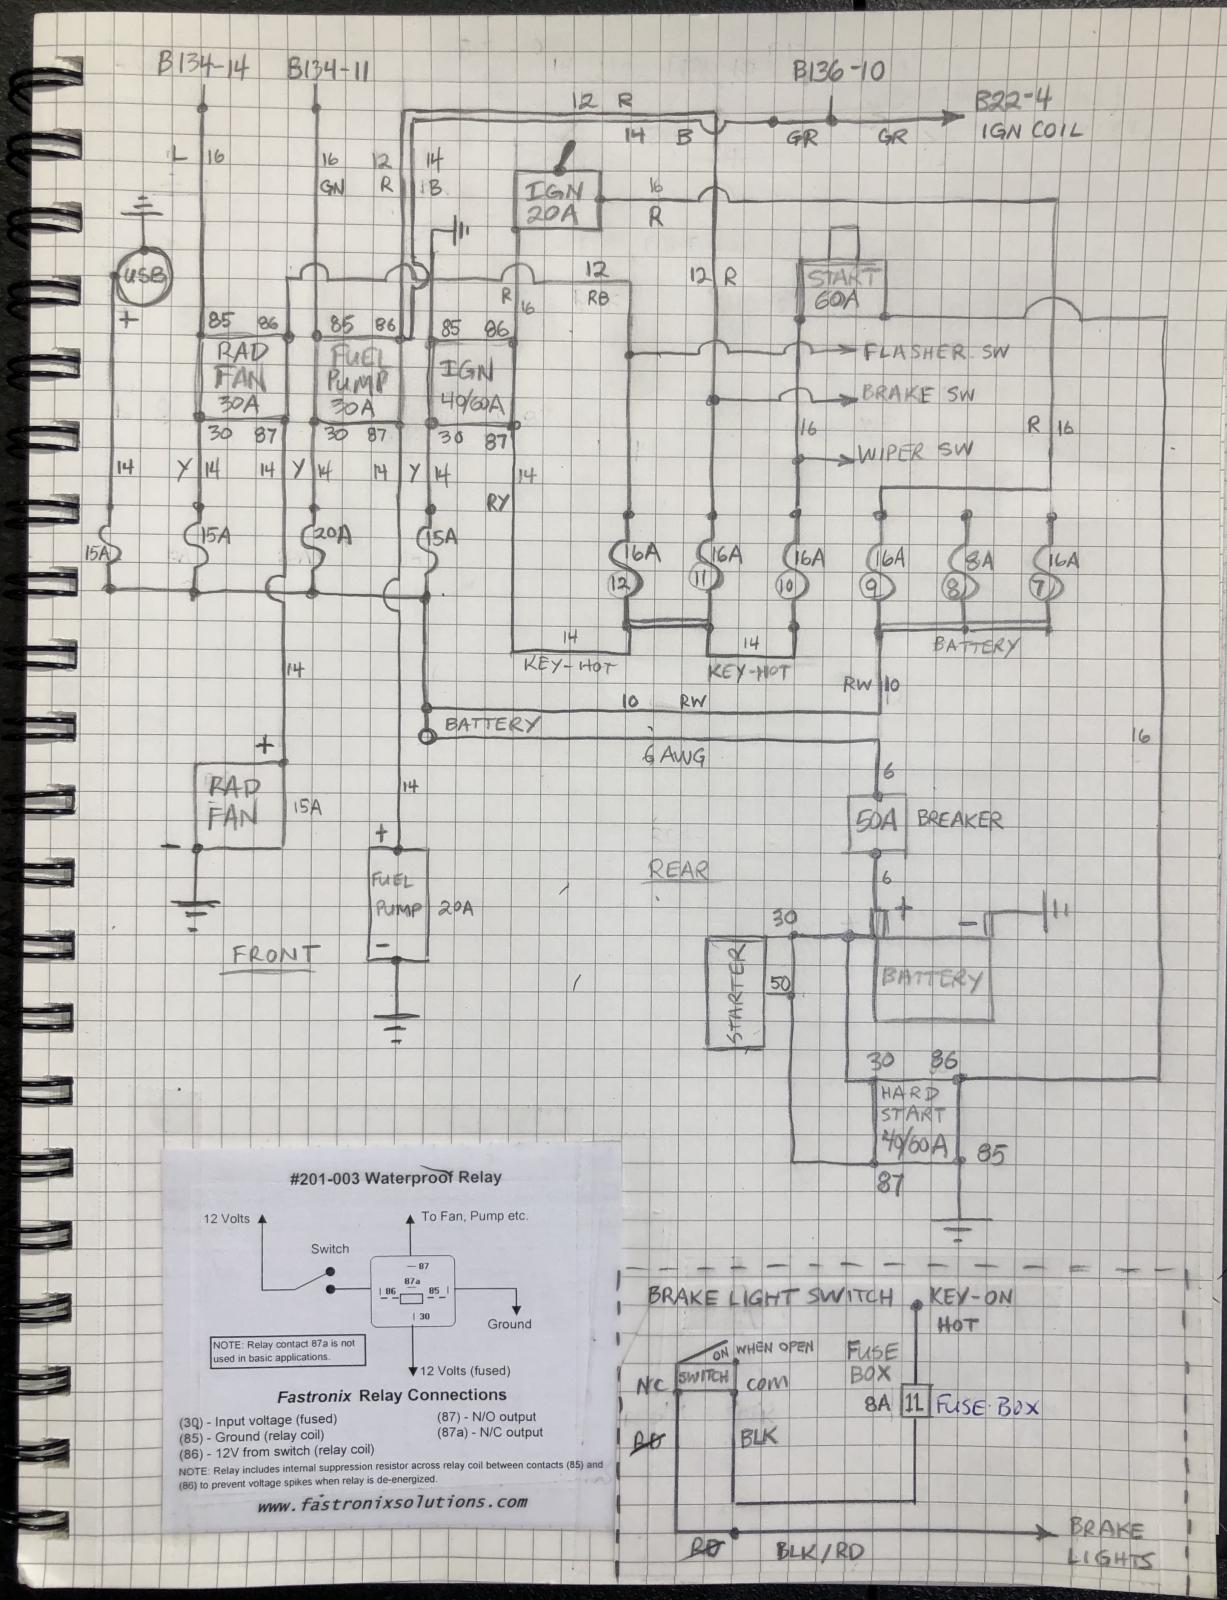 B134-14 B134-11 B136-10
12 R
B22-4
14 B GR GR IGN COIL
L 16 16 12 14
GN R B
IGN
20A
16
R
USB
+
12
RB
12 R
START
60A
R 16
85 86 85 86 85 86
RAD
FAN
30A
FUEL
PUMP
30A
IGN
40/60A
FLASHER SW
BRAKE SW
30 87 30 87 30 87
16
R 16
WIPER SW
14 Y 14 14 Y 14 14 Y 14 14
RY
15A 15A 20A 15A
16A 16A 16A 16A 8A 16A
12 11 10 9 8 7
14 14
KEY-HOT KEY-HOT
BATTERY
14
RW 10
10 RW
BATTERY
6 AWG
16
6
+
RAD
FAN
15A
-
14
50A BREAKER
+
FUEL
PUMP 20A
-
REAR
6
+ -
30
BATTERY
50
STARTER
FRONT
30 86
HARD
START
40/60A
85
87
#201-003 Waterproof Relay
12 Volts
To Fan, Pump etc.
Switch
87
87a
86 85
30
Ground
NOTE: Relay contact 87a is not
used in basic applications.
12 Volts (fused)
Fastronix Relay Connections
(30) - Input voltage (fused)
(85) - Ground (relay coil)
(86) - 12V from switch (relay coil)
(87) - N/O output
(87a) - N/C output
NOTE: Relay includes internal suppression resistor across relay coil between contacts (85) and
(86) to prevent voltage spikes when relay is de-energized.
www.fastronixsolutions.com
BRAKE LIGHT SWITCH
KEY-ON
HOT
ON WHEN OPEN
SWITCH
NC COM
FUSE
BOX
8A 11 FUSE BOX
RD
BLK
RD BLK/RD
BRAKE
LIGHTS